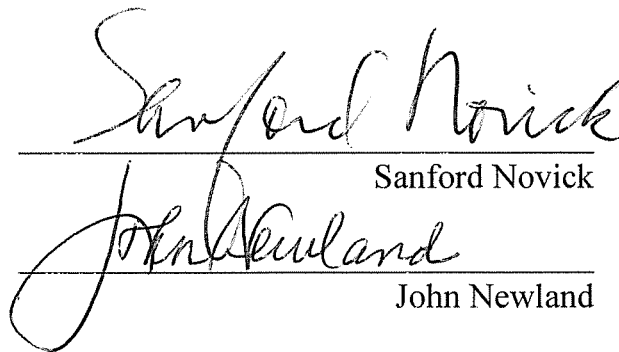 Sanford Novick
Sanford Novick
John Newland
John Newland